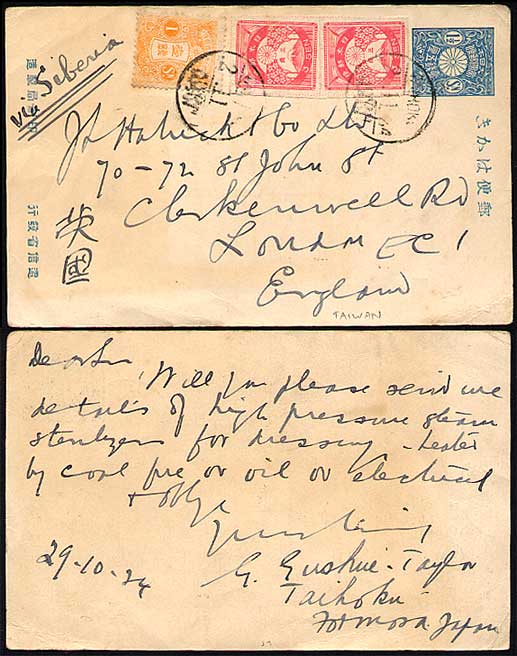 via Siberia
郵便はかき
遞信省發行
1½
1
英國
70-72 St John St
Clerkenwell Rd
London EC 1
England
TAIWAN
Dear Sir
Will you please send me
details of high pressure steam
sterilizers for dressing - heated
by coal fire or oil or electrical
& oblige
29-10-24
G. Gushue-Taylor
Taihoku
Formosa. Japan